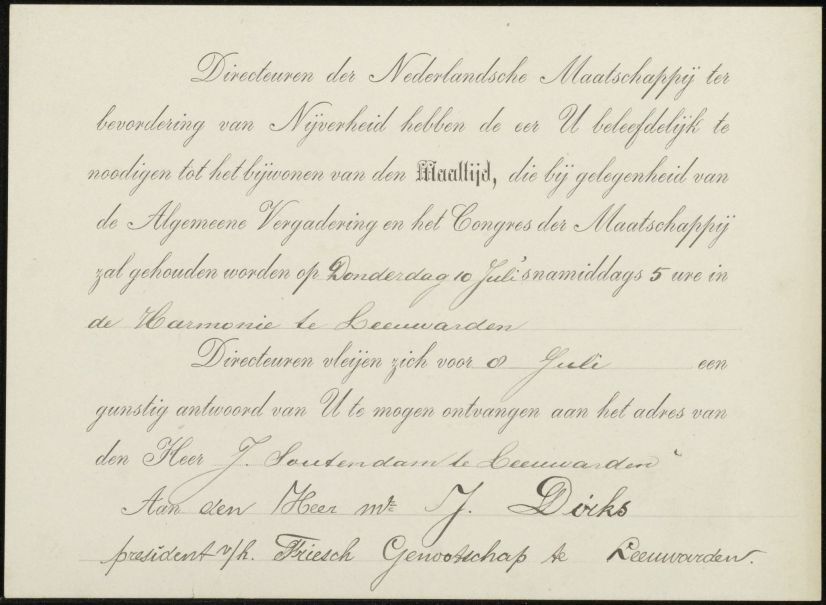 Directeuren der Nederlandsche Maatschappij ter
bevordering van Nijverheid hebben de eer U beleefdelijk te
noodigen tot het bijwonen van den Maaltijd, die bij gelegenheid van
de Algemeene Vergadering en het Congres der Maatschappij
zal gehouden worden op Donderdag 10 Juli 'snamiddags 5 ure in
de Harmonie te Leeuwarden
Directeuren vleijen zich voor 8 Juli een
gunstig antwoord van U te mogen ontvangen aan het adres van
den Heer J. Soutendam te Leeuwarden
Aan den Heer Mr J. Dirks
president v/h. Friesch Genootschap te Leeuwarden.